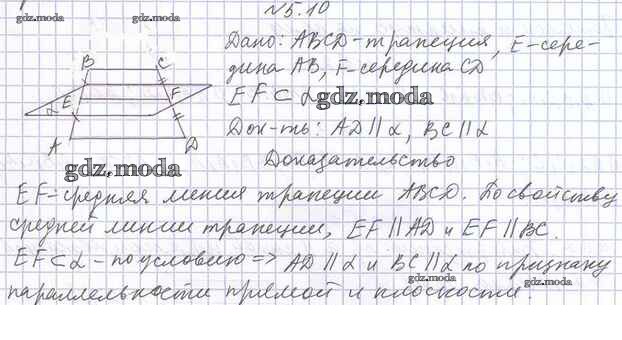 №5.10
Дано: ABCD - трапеция, E - сере-
дина AB, F - середина CD
EF ⊂ α gdz.moda
Док-ть: AD || α, BC || α
Доказательство
gdz.moda
B C
E F
α
A D
gdz.moda
EF - средняя линия трапеции ABCD. По свойству
средней линии трапеции, EF || AD и EF || BC.
EF ⊂ α - по условию => AD || α и BC || α по признаку
gdz.moda
параллельности прямой и плоскости.
gdz.moda